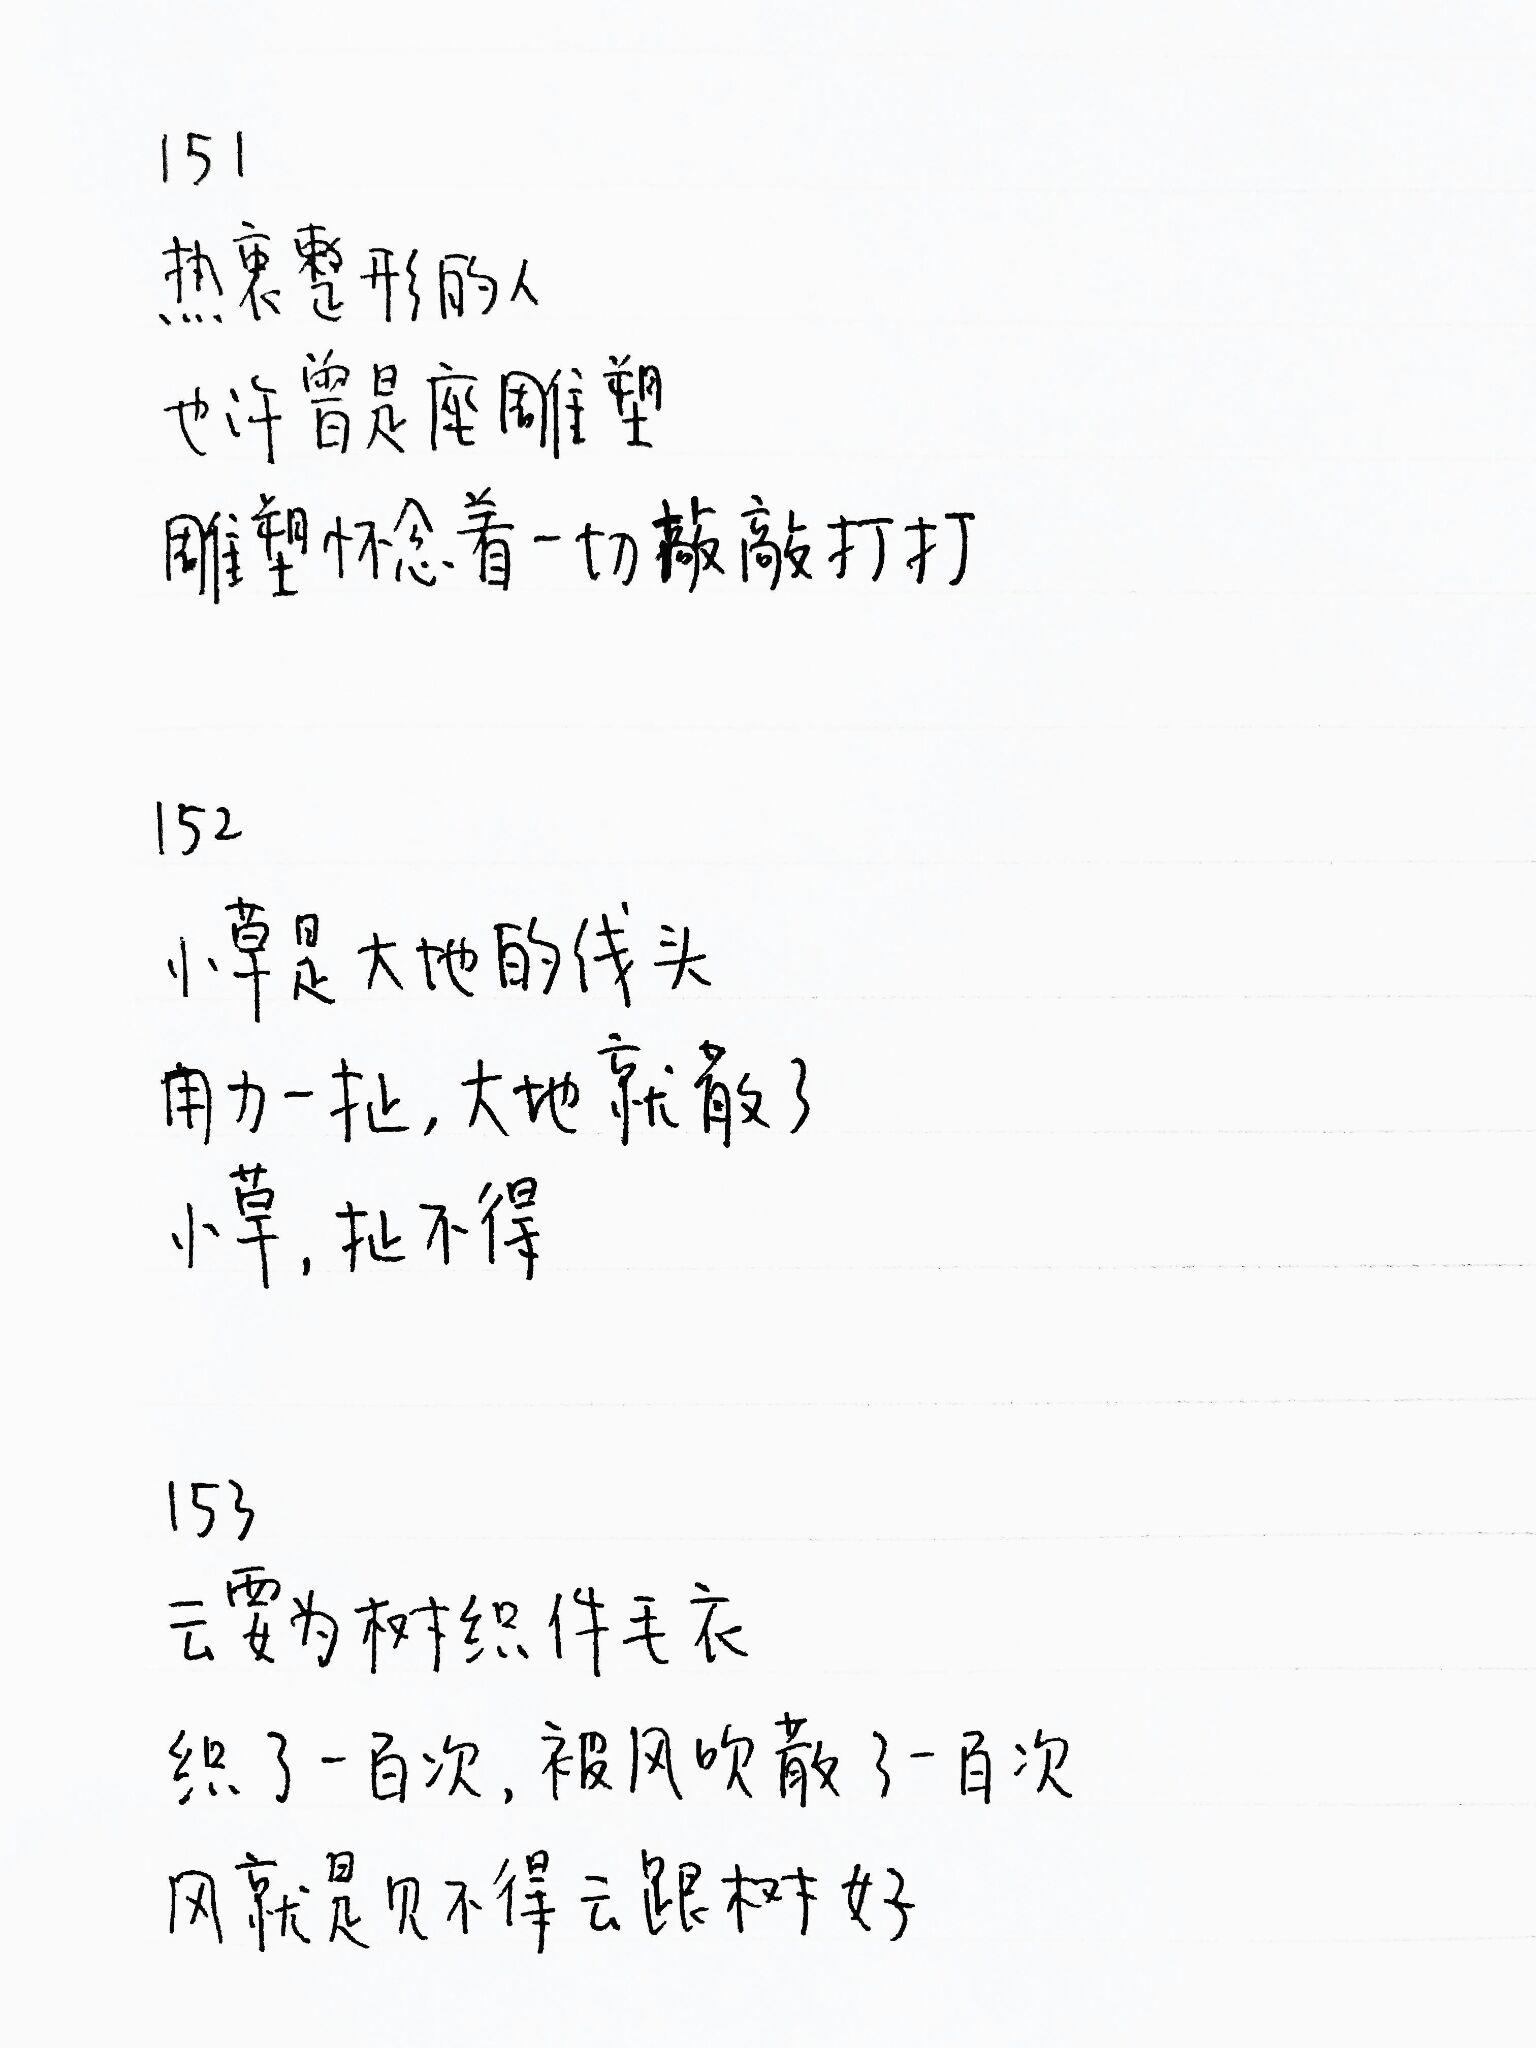 151
热衷整形的人
也许曾是座雕塑
雕塑怀念着一切敲敲打打
152
小草是大地的线头
用力一扯,大地就散了
小草,扯不得
153
云要为树织件毛衣
织了一百次,被风吹散了一百次
风就是见不得云跟树好